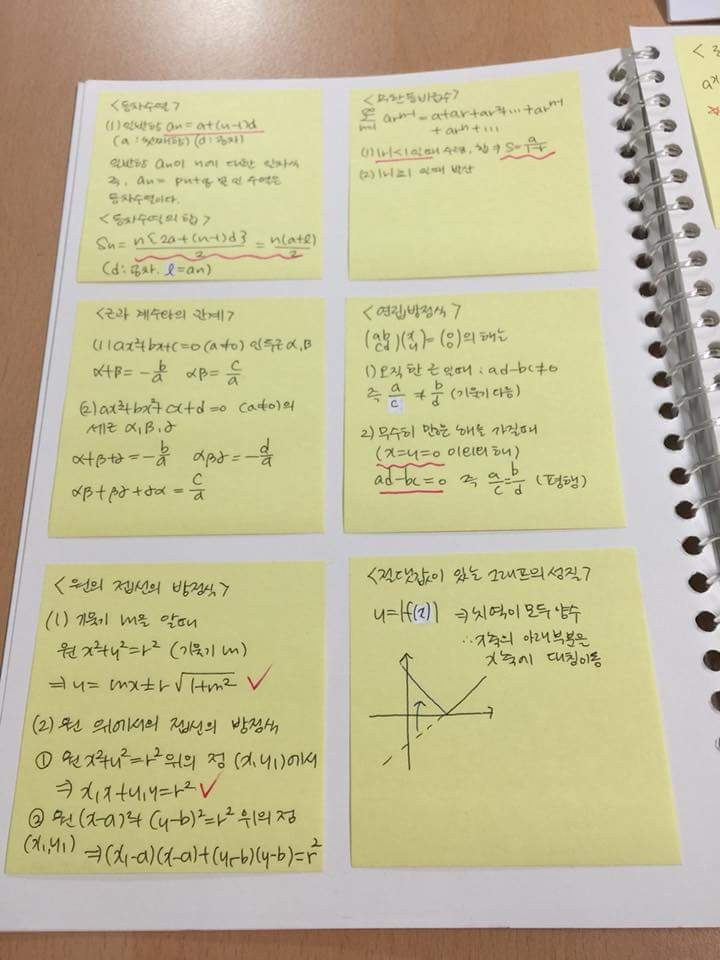 <등차수열>
(1) 일반항 an = a+(n-1)d
(a : 첫째항) (d : 공차)
일반항 an이 n에 대한 일차식
즉, an = pn+q 인 수열은
등차수열이다.
<등차수열의 합>
Sn = n{2a+(n-1)d}/2 = n(a+l)/2
(d : 공차, l = an)
<무한등비급수>
∞∑n=1 ar^n-1 = a+ar+ar²+…+ar^n-1
+ar^n+…
(1) |r|<1 일때 수렴, 합 → S = a/1-r
(2) |r|≥1 일때 발산
<근과 계수와의 관계>
(1) ax²+bx+c=0 (a≠0) 의 두근 α, β
α+β = -b/a αβ = c/a
(2) ax³+bx²+cx+d=0 (a≠0)의
세근 α, β, γ
α+β+γ = -b/a αβγ = -d/a
αβ+βγ+γα = c/a
<연립방정식>
(ab cd)(x y) = (0 0) 의 해는
1) 오직 한 근일때 : ad-bc≠0
즉 a/c ≠ b/d (기울기 다름)
2) 무수히 많은 해를 가질때
(x=y=0 이외의 해)
ad-bc=0 즉 a/c = b/d (평행)
<원의 접선의 방정식>
(1) 기울기 m을 알때
원 x²+y²=r² (기울기 m)
⇒ y = mx±r√1+m² ✓
(2) 원 위에서의 접선의 방정식
① 원 x²+y²=r² 위의 점 (x₁y₁)에서
⇒ x₁x+y₁y=r² ✓
② 원 (x-a)²+(y-b)²=r² 위의 점
(x₁,y₁) ⇒ (x₁-a)(x-a)+(y₁-b)(y-b)=r²
<절댓값이 있는 그래프의 성질>
y=|f(x)| ⇒ 치역이 모두 양수
∴ x축의 아래부분은
x축에 대칭이동
<
ax